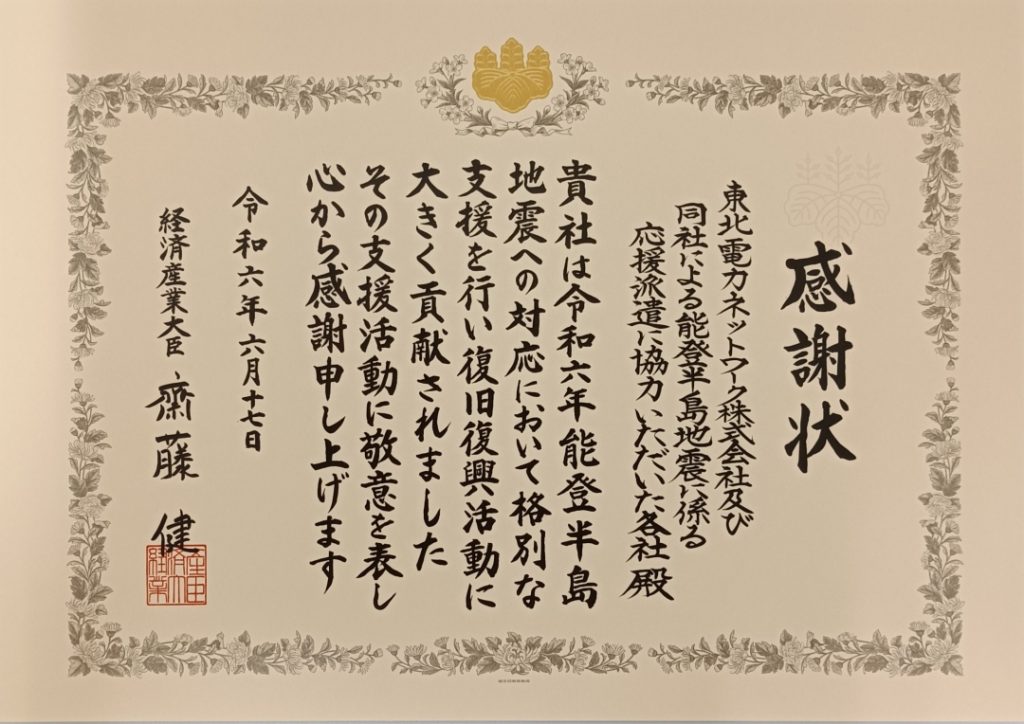 感謝状
東北電力ネットワーク株式会社及び
同社による能登半島地震に係る
応援派遣に協力いただいた各社殿
貴社は令和六年能登半島
地震への対応において格別な
支援を行い復旧復興活動に
大きく貢献されました
その支援活動に敬意を表し
心から感謝申し上げます
令和六年六月十七日
経済産業大臣 齋藤健